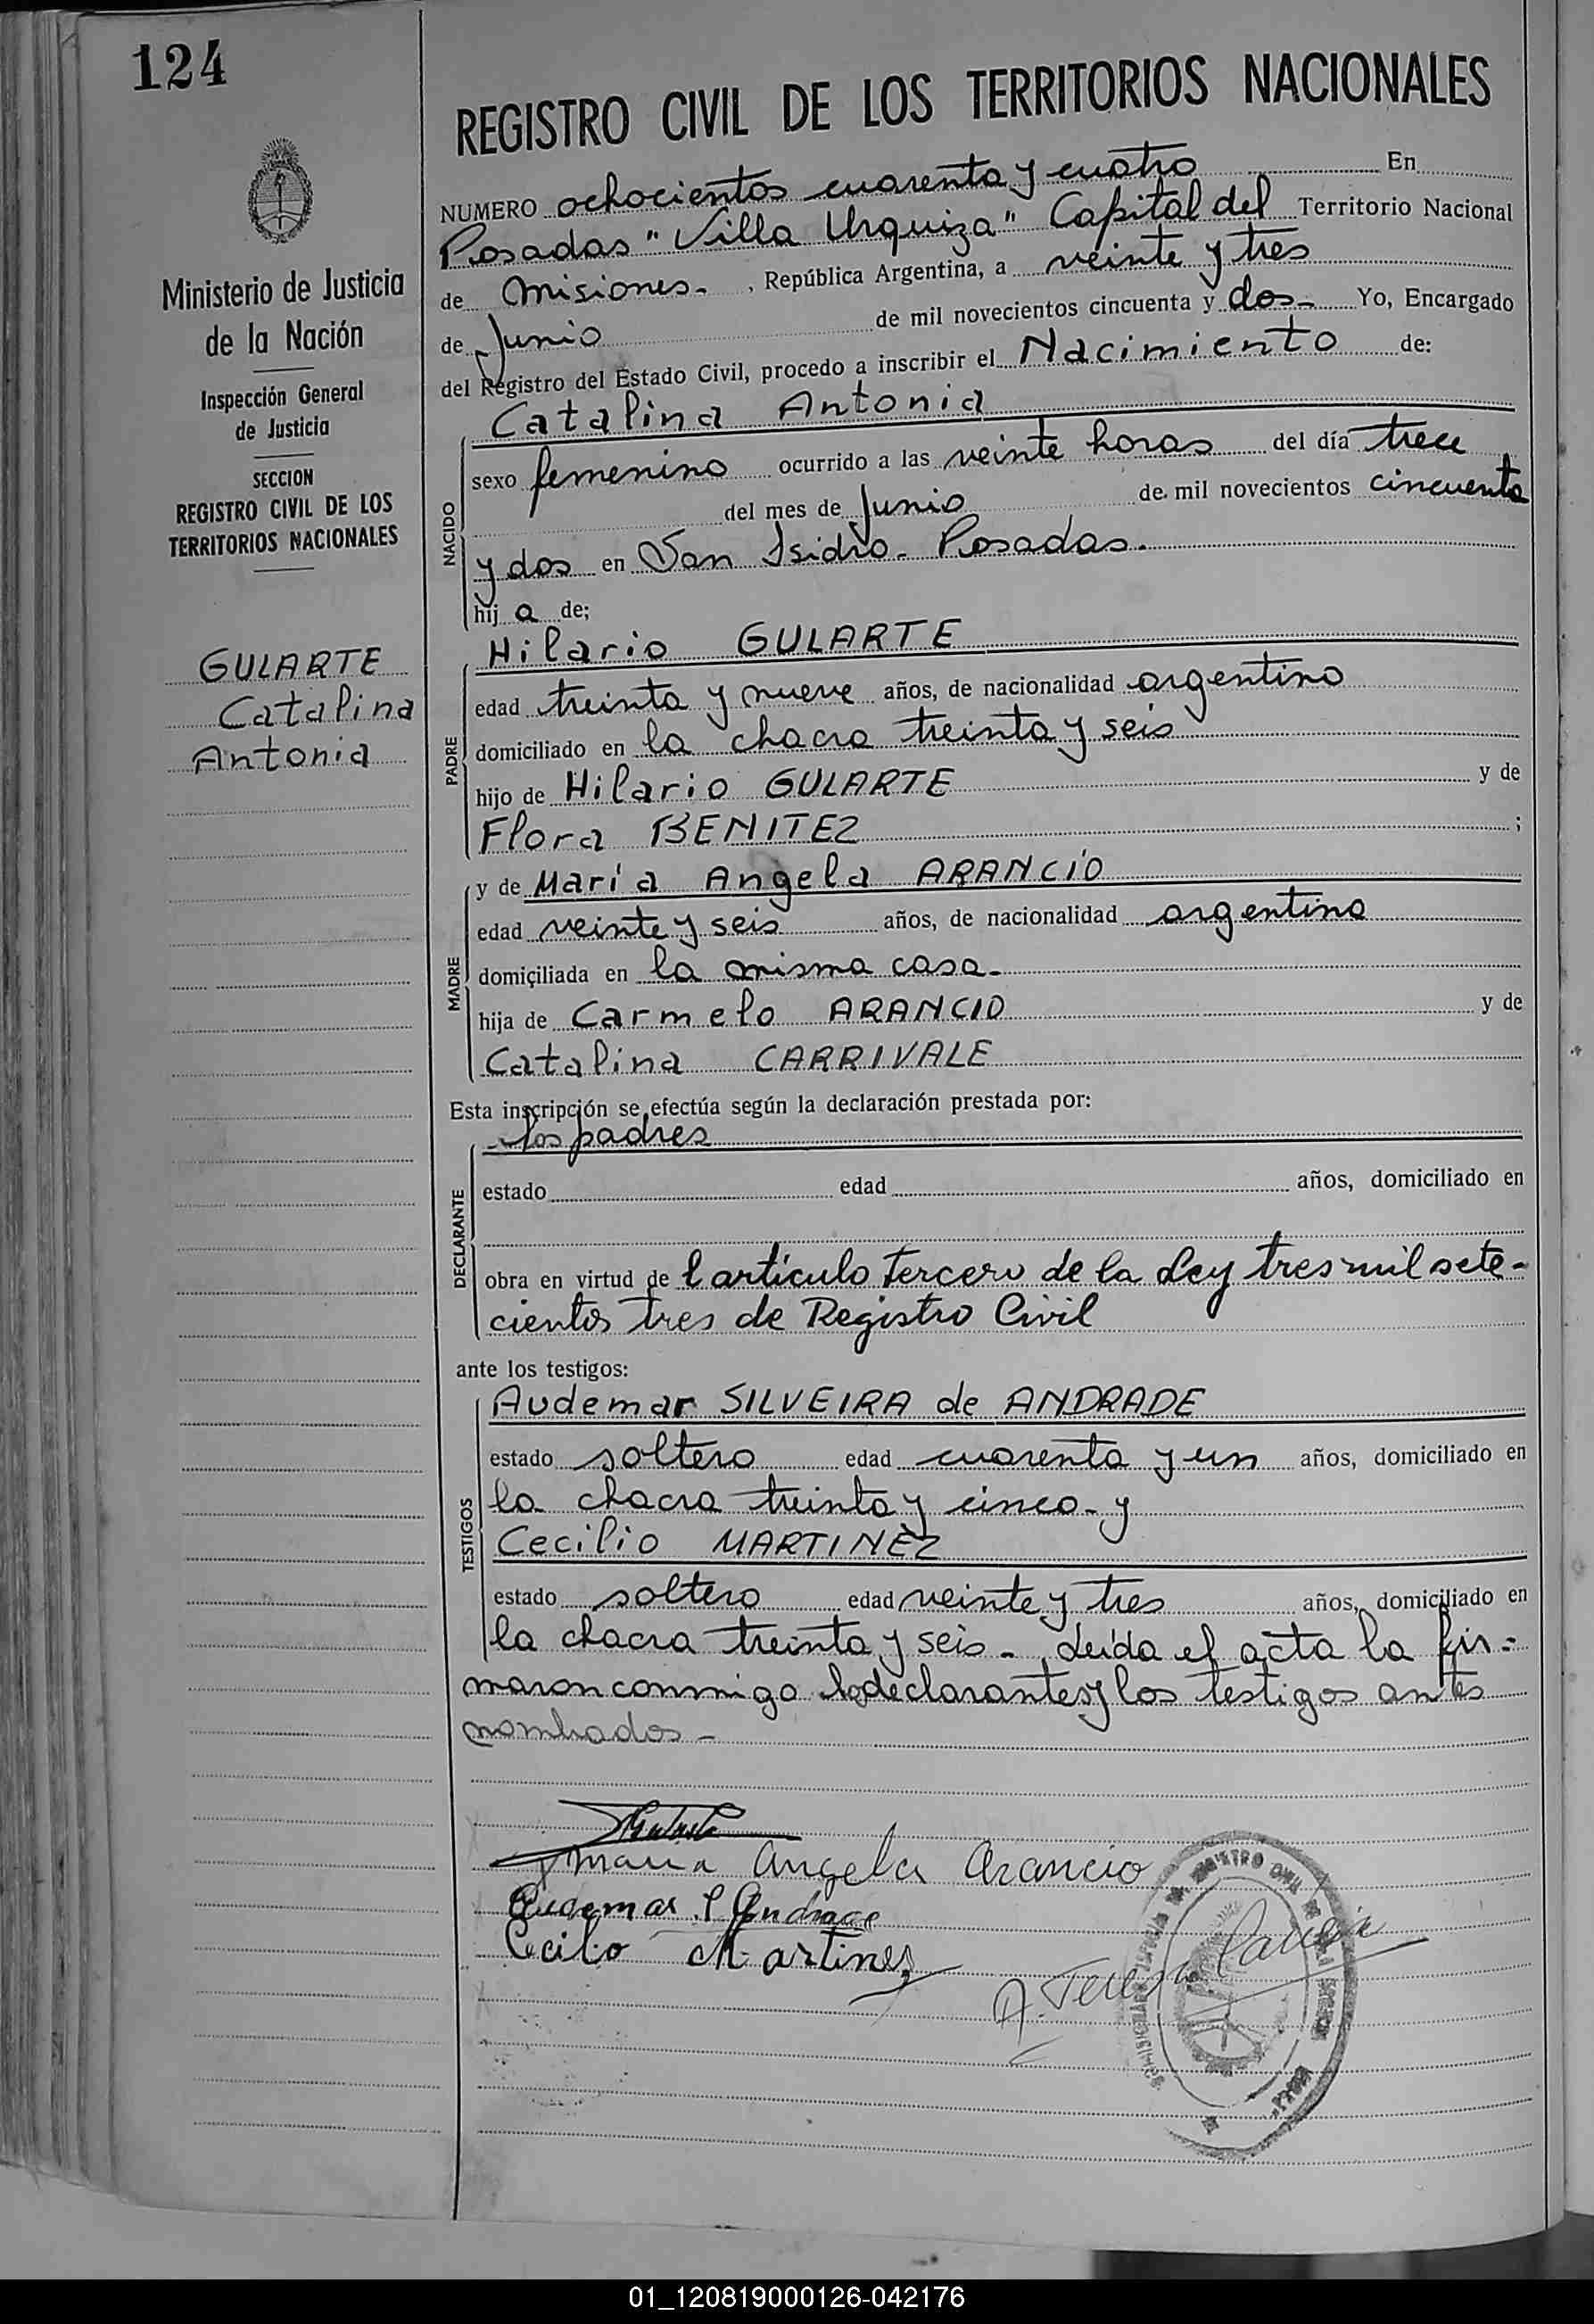 124
REGISTRO CIVIL DE LOS TERRITORIOS NACIONALES
NUMERO ochocientos cuarenta y cuatro En
Posadas "Villa Urquiza" Capital del Territorio Nacional
de Misiones - , República Argentina, a veinte y tres
de Junio de mil novecientos cincuenta y dos - Yo, Encargado
del Registro del Estado Civil, procedo a inscribir el Nacimiento de:
Catalina Antonia
NACIDO
sexo femenino ocurrido a las veinte horas del día trece
del mes de Junio de mil novecientos cincuenta
y dos en San Isidro - Posadas.
hij a de;
PADRE
Hilario GULARTE
edad treinta y nueve años, de nacionalidad argentino
domiciliado en la chacra treinta y seis
hijo de Hilario GULARTE y de
Flora BENITEZ ;
MADRE
y de María Angela ARANCIO
edad veinte y seis años, de nacionalidad argentina
domiciliada en la misma casa -
hija de Carmelo ARANCIO y de
Catalina CARRIVALE
Esta inscripción se efectúa según la declaración prestada por:
DECLARANTE
los padres
estado edad años, domiciliado en
obra en virtud de l artículo tercero de la Ley tres mil sete-
cientos tres de Registro Civil
ante los testigos:
TESTIGOS
Audemar SILVEIRA de ANDRADE
estado soltero edad cuarenta y un años, domiciliado en
la chacra treinta y cinco - y
Cecilio MARTINEZ
estado soltero edad veinte y tres años, domiciliado en
la chacra treinta y seis - , Leída el acta la fir=
maron conmigo los declarantes y los testigos antes
nombrados -
Maria Angela Arancio
Audemar S Andrade
Cecilio Martinez
Ministerio de Justicia
de la Nación
Inspección General
de Justicia
SECCION
REGISTRO CIVIL DE LOS
TERRITORIOS NACIONALES
GULARTE
Catalina
Antonia
01_120819000126-042176